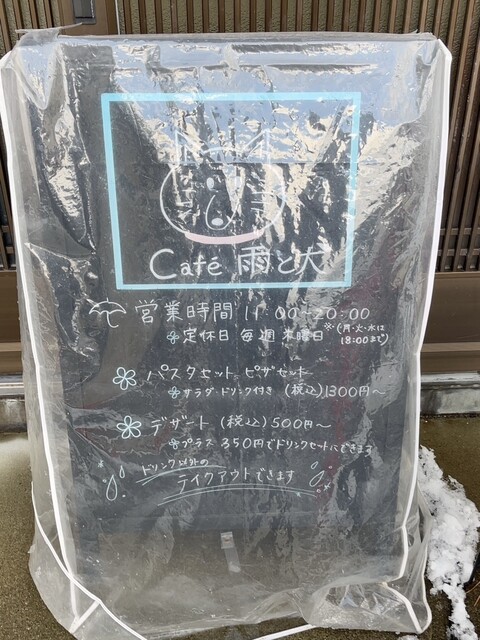 Café 雨と犬
営業時間 11:00~20:00
定休日 毎週木曜日 ※(月・火・水は
18:00まで)
パスタセット ピザセット
サラダ・ドリンク付き (税込)1300円~
デザート (税込)500円~
プラス 350円でドリンクセットにできます
ドリンク以外の
テイクアウトできます